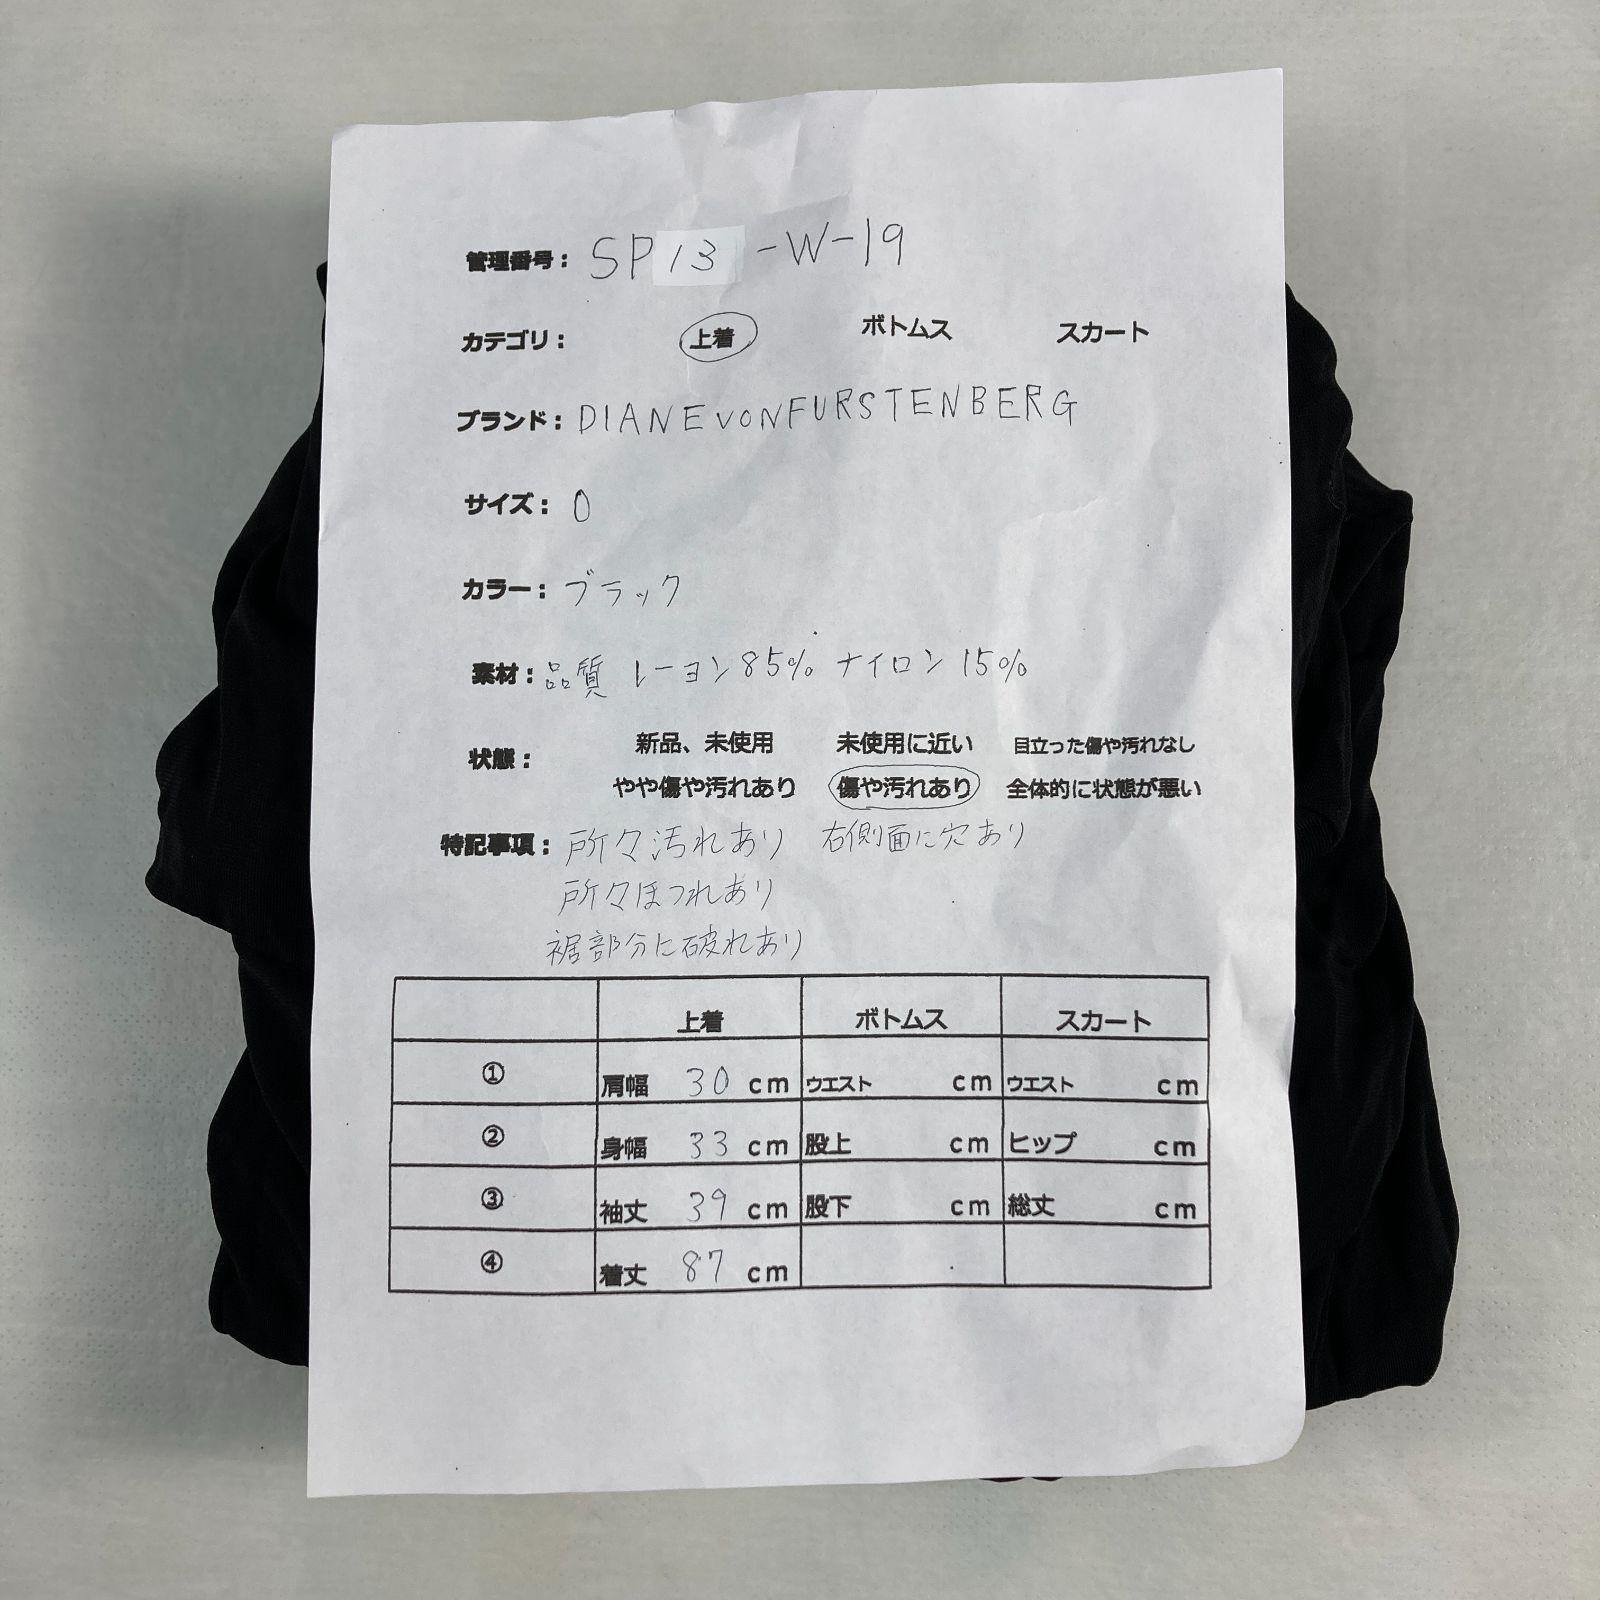 管理番号： SP13-W-19
カテゴリ： 上着 ボトムス スカート
ブランド： DIANE vON FURSTENBERG
サイズ： 0
カラー： ブラック
素材： 品質 レーヨン85% ナイロン15%
状態： 新品、未使用 未使用に近い 目立った傷や汚れなし
やや傷や汚れあり 傷や汚れあり 全体的に状態が悪い
特記事項： 所々汚れあり 右側面に穴あり
所々ほつれあり
裾部分に破れあり
上着 ボトムス スカート
① 肩幅 30 cm ウエスト cm ウエスト cm
② 身幅 33 cm 股上 cm ヒップ cm
③ 袖丈 39 cm 股下 cm 総丈 cm
④ 着丈 87 cm